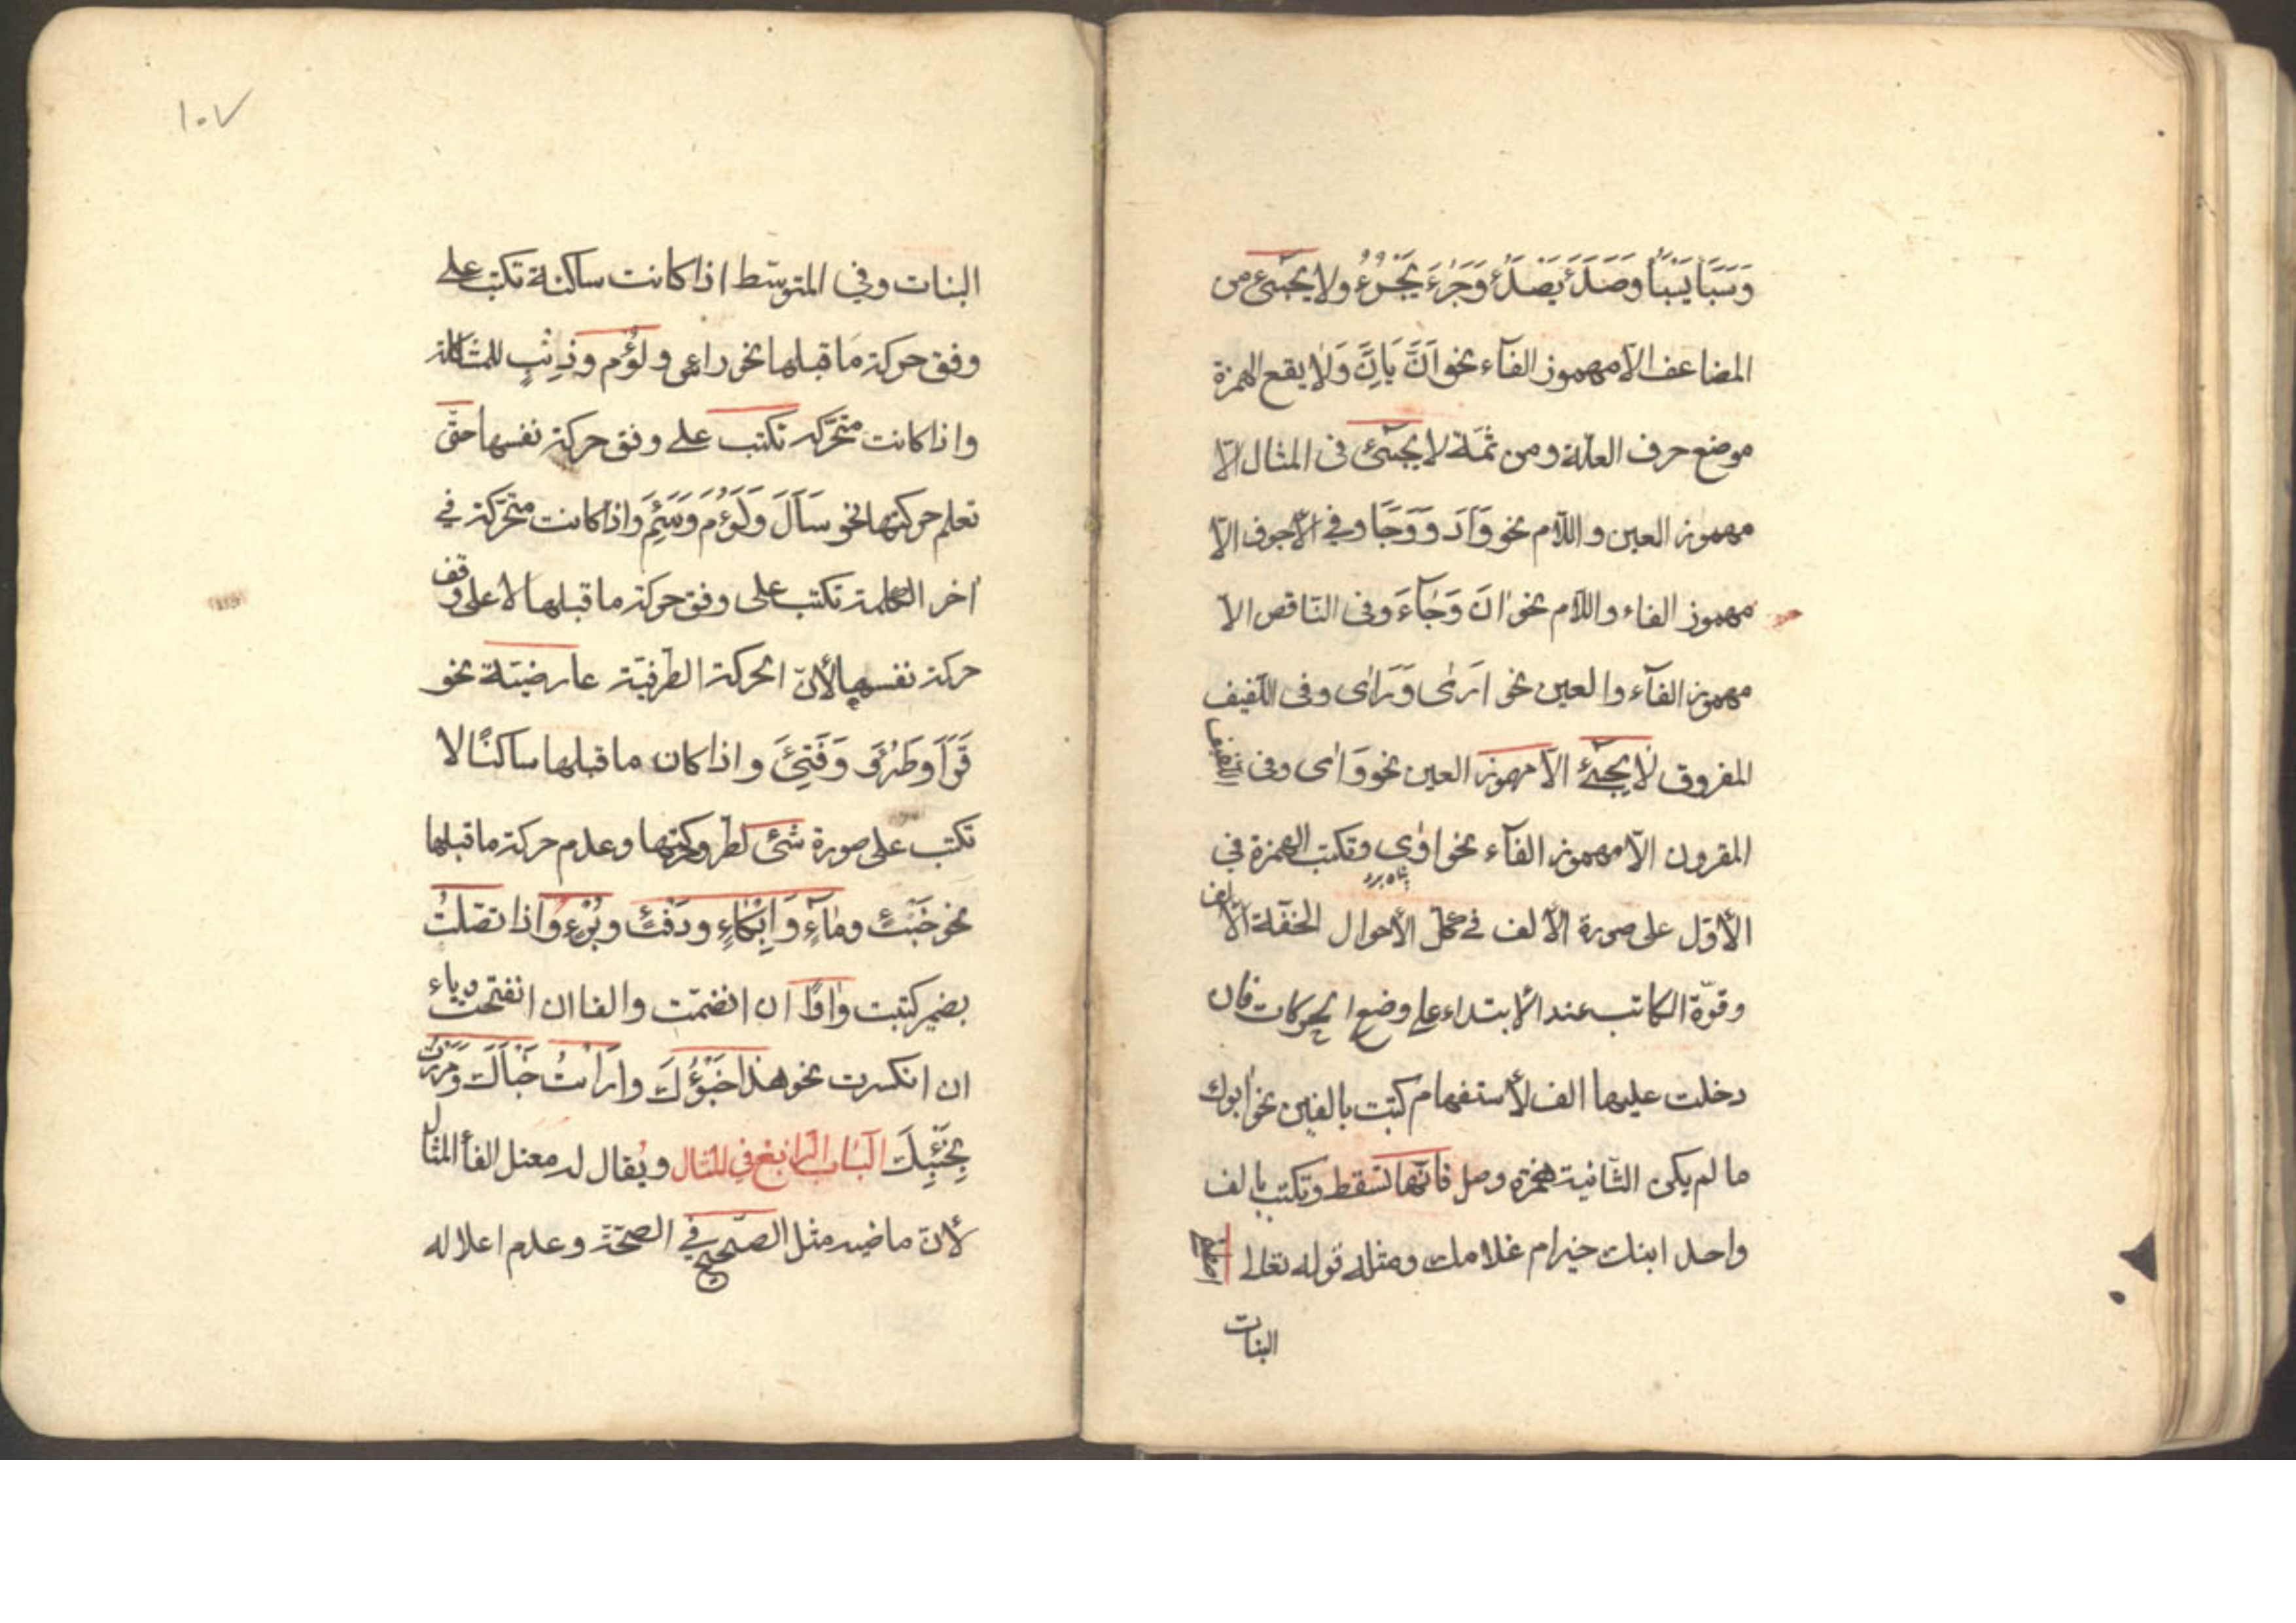 وَسَبَأَ يَسْبَأُ وَصَدَئَ يَصْدَئُ وَجَرُءَ يَجْرُءُ ولا يجيئ من
المضاعف الا مهموز الفآء نحو اَنَّ يَانُّ وَلا يقع الهمزة
موضع حرف العلّة ومن ثمّة لا يجيئ فى المثال الّا
مهموز العين واللام نحو وَاَدَ وَوَجَا وفي الاجوف الّا
مهموز الفاء واللام نحو اٰنَ وَجَآءَ وفى النّاقص الاّ
مهموز الفآء والعين نحو ارىٰ وَرَاٰى وفى اللّفيف
المفروق لا يجيئ الاّ مهموز العين نحو وَاٰى وفى
المقرون الاّ مهموز الفآء نحو اوٰى وتكتب الهمزة في
الأوّل على صورة الألف في كلّ الأحوال لخفّة الألف
وقوّة الكاتب عند الابتداء على وضع الحركات فان
دخلت عليها الف لأستفهام كتبت بالفين نحو أابوك
ما لم يكن الثّانية همزة وصل فانّها تسقط وتكتب بالف
واحد ابنك خير ام غلامك ومثله قوله تعالى اصطفى
البنات
١٠٧
البنات وفي المتوسّط اذا كانت ساكنة تكتب على
وفق حركة ما قبلها نحو راس ولُؤْم وذِئْب للمشاكلة
واذا كانت متحرّكه تكتب على وفق حركة نفسها حتّى
تعلم حركتها نحو سَاَلَ وَلَؤُمَ وَسَئِمَ واذا كانت متحرّكة في
اخر الكلمة تكتب على وفق حركة ما قبلها لا على وفق
حركة نفسها لأنّ الحركة الطرفيّة عارضيّة نحو
قَرَاَ وطَرُؤَ وَفَتِئَ واذا كان ما قبلها ساكنًا لا
تكتب على صورة شئ لطرو حركتها وعدم حركة ما قبلها
نحو خَبْئٍ ومَآءٍ وَاِبْكَاءٍ ودَفْئٍ وبُرْءٍ واذا اتصلت
بضمير كتبت واوًا ان انضمّت والفا ان انفتحت وياء
ان انكسرت نحو هذا خَبْؤُكَ وارَاَيْتُ خَبْاَكَ ومَرَرْتُ
بِخَبْئِكَ الباب الرّابع في المثال ويُقال له معتل الفأ المثال
لأنّ ماضيه مثل الصّحيح في الصحّة وعدم اعلاله